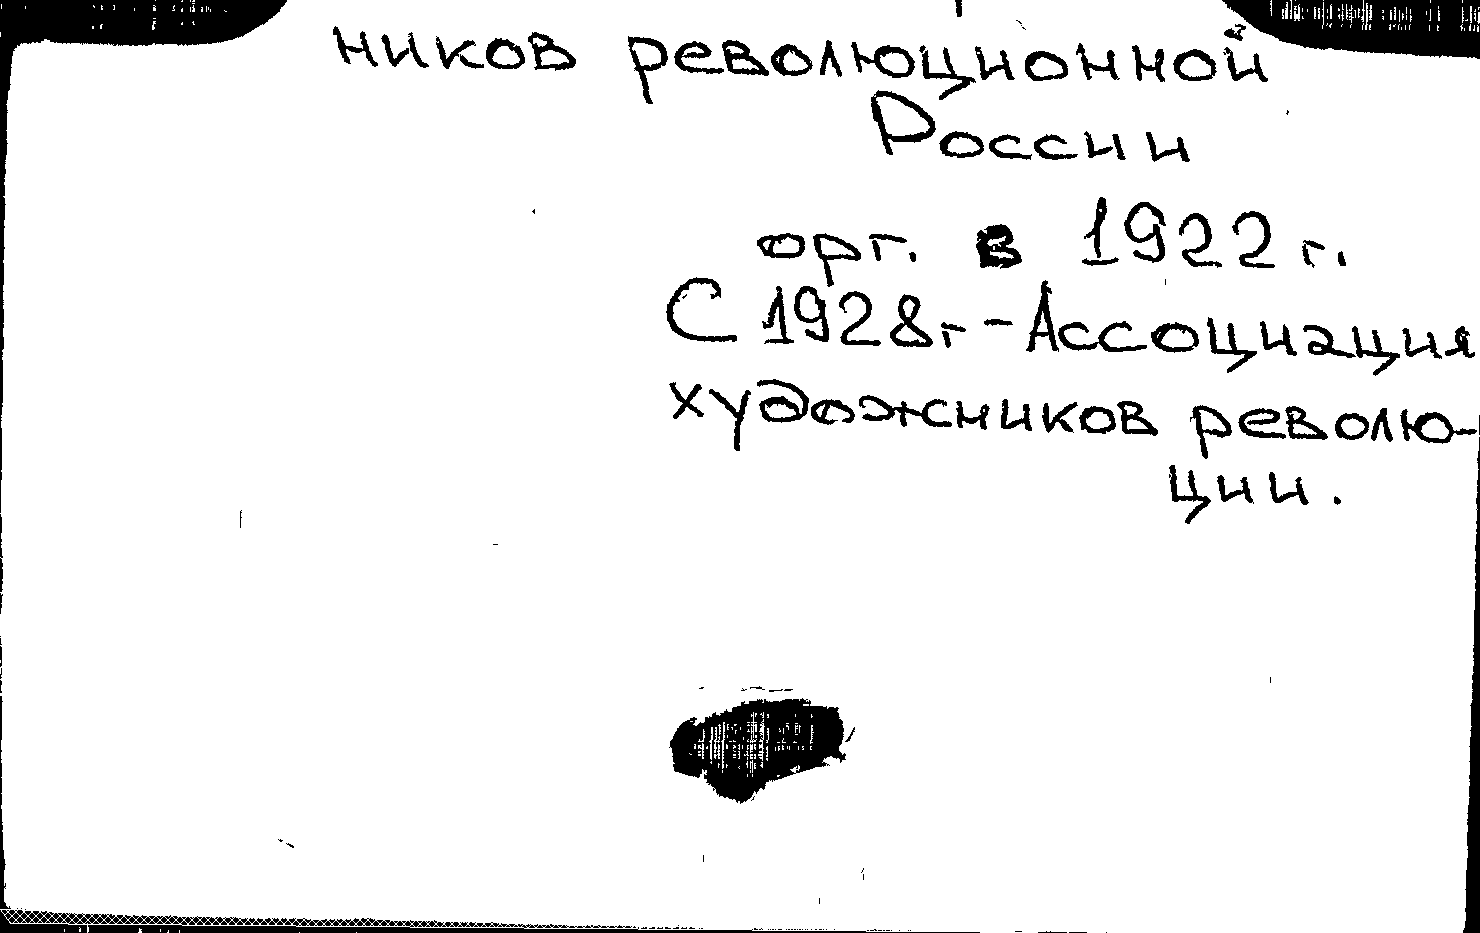 ников революционной
России
орг. в 1922 г.
С 1928г - Ассоциация
художников револю-
ции.